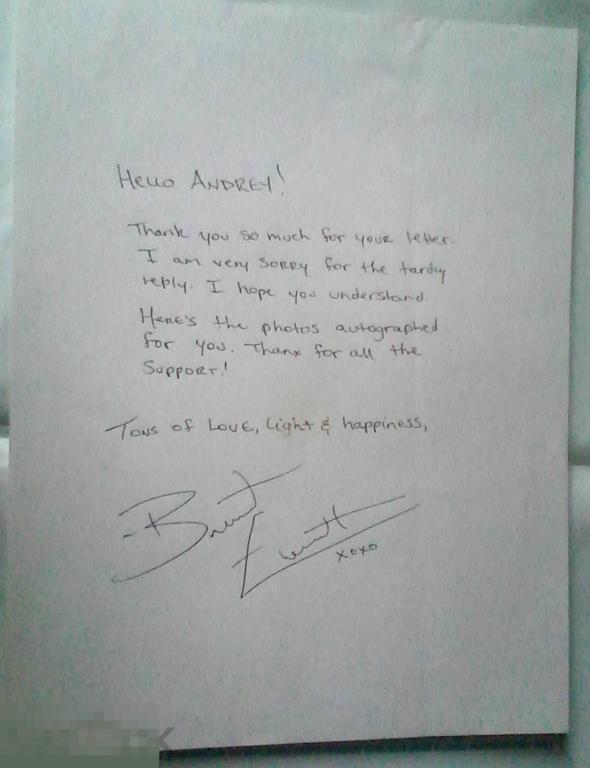 Hello ANDREY!
Thank you so much for your letter.
I am very sorry for the tardy
reply. I hope you understand.
Here's the photos autographed
for you. Thanx for all the
Support!
Tons of Love, light & happiness,
-Brent
xoxo